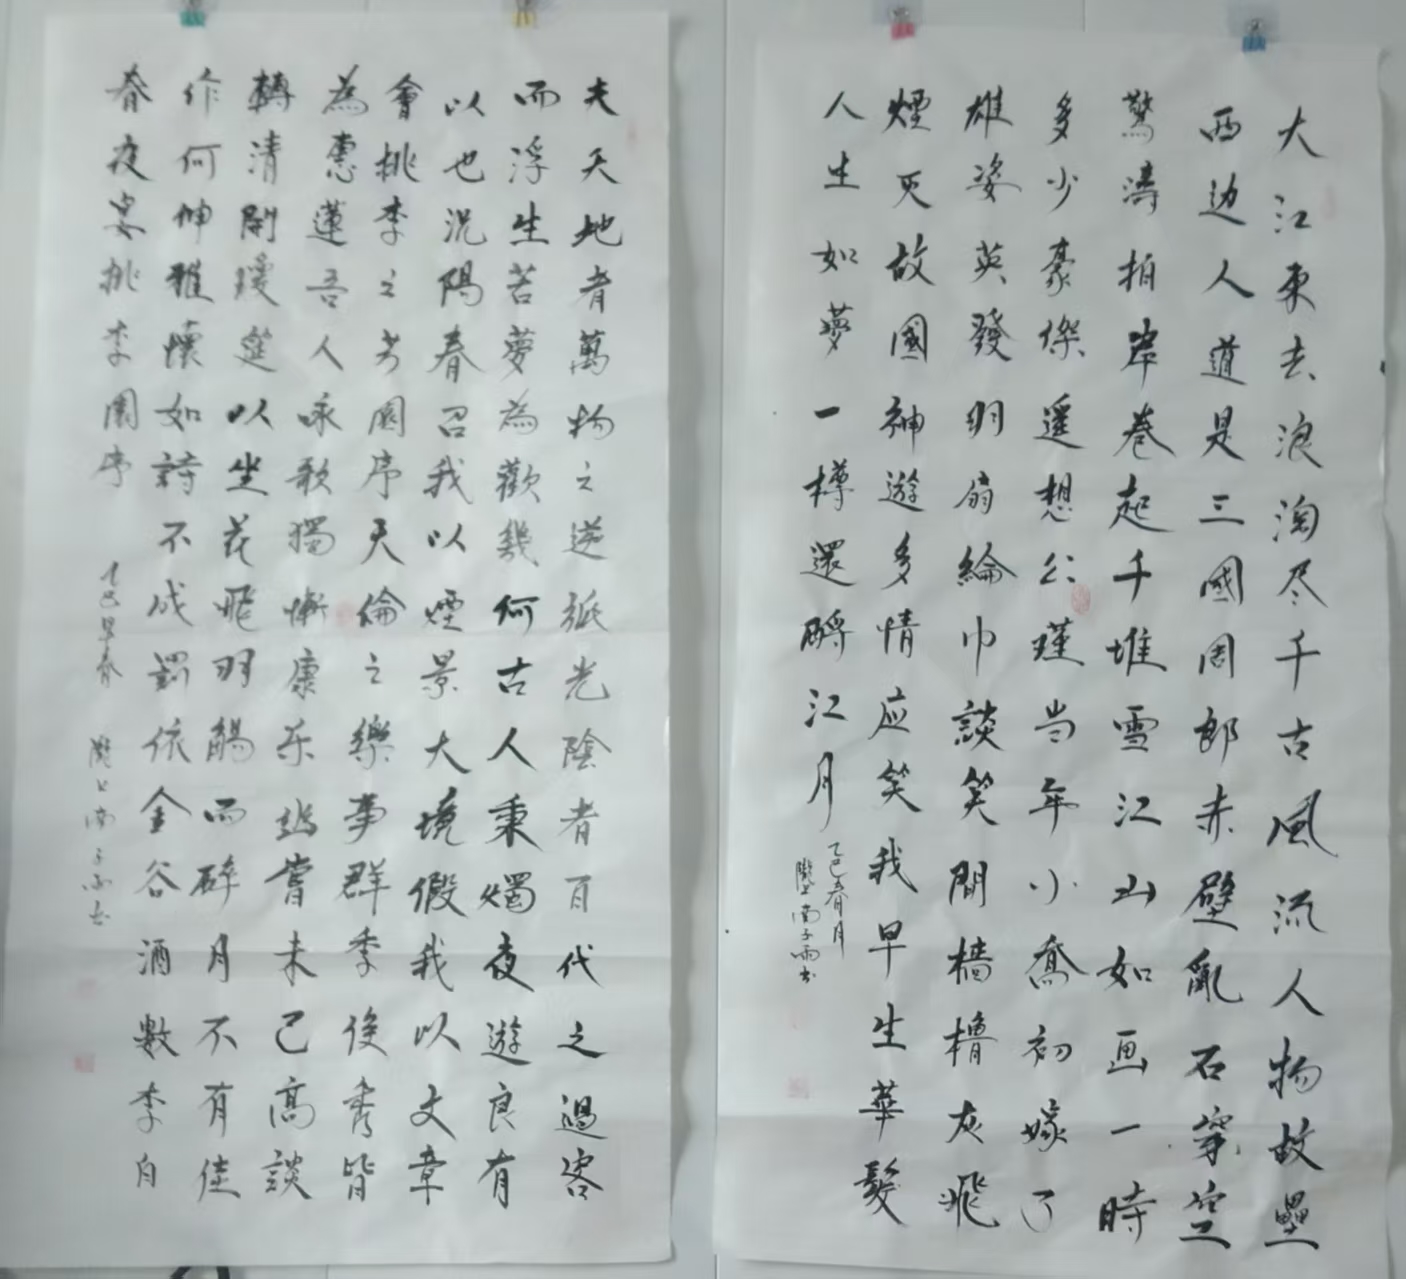 大江東去浪淘尽千古風流人物故壘
西边人道是三國周郎赤壁亂石穿空
驚濤拍岸卷起千堆雪江山如画一時
多少豪傑遥想公瑾当年小喬初嫁了
雄姿英發羽扇綸巾談笑間檣櫓灰飛
煙灭故國神遊多情应笑我早生華髮
人生如夢一樽還酹江月
乙巳春月
隴上南子雨书
夫天地者萬物之逆旅光陰者百代之過客
而浮生若夢為歡幾何古人秉燭夜遊良有
以也況陽春召我以煙景大塊假我以文章
會桃李之芳園序天倫之樂事群季俊秀皆
為惠蓮吾人咏歌獨慚康乐幽賞未已高談
轉清開瓊筵以坐花飛羽觴而醉月不有佳
作何伸雅懷如詩不成罰依金谷酒數李白
春夜宴桃李園序 乙巳早春 隴上南子雨书